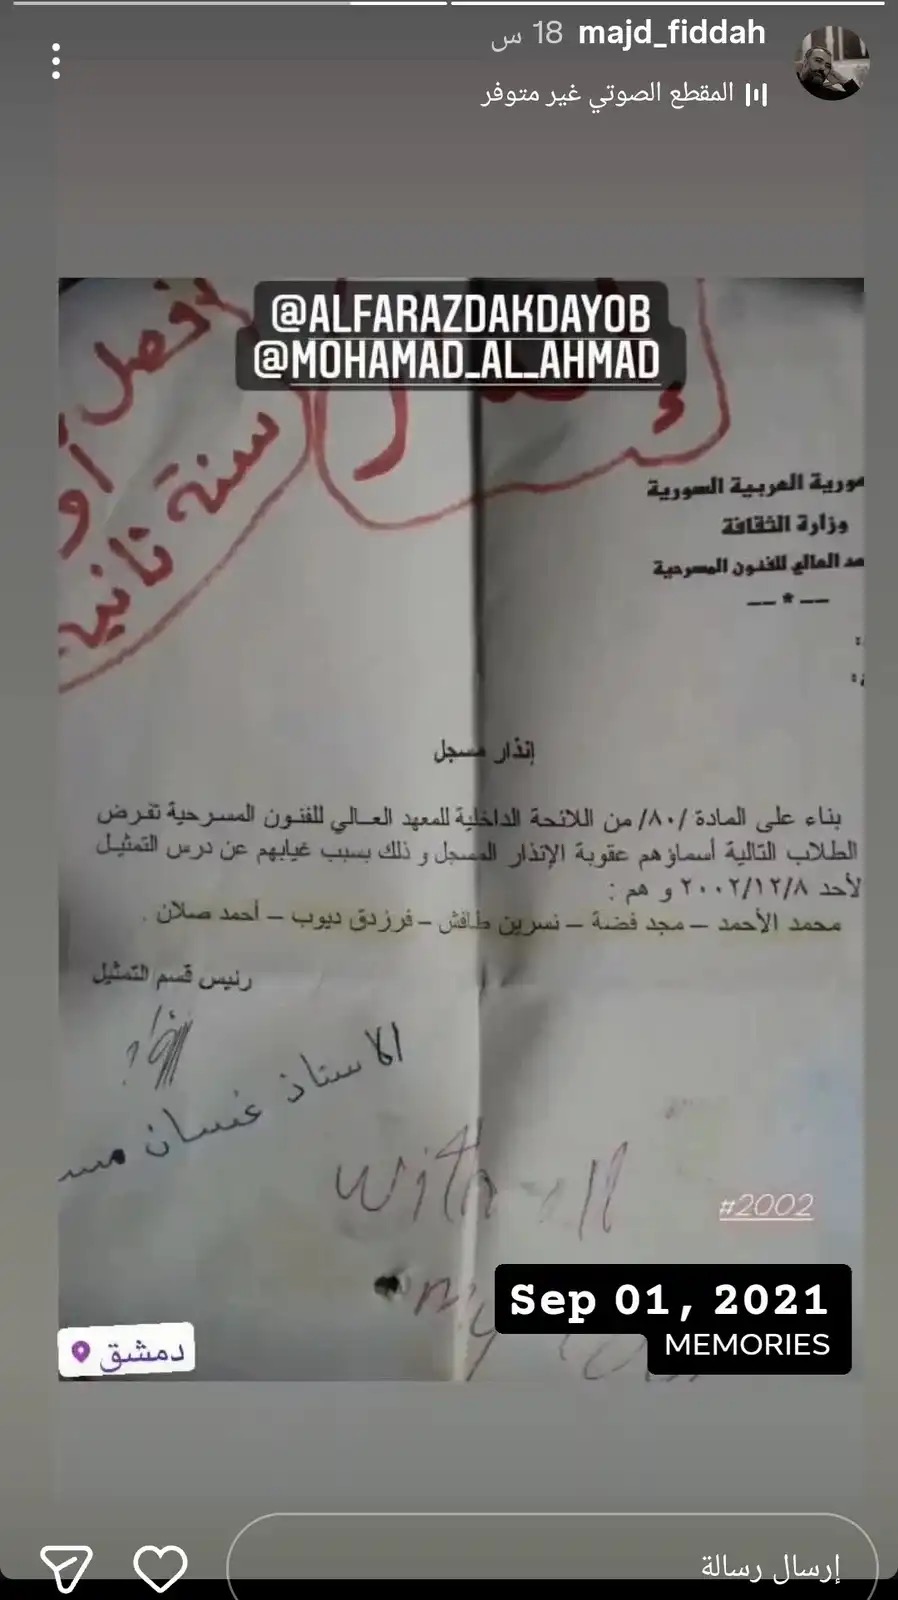 majd_fiddah 18 س
المقطع الصوتي غير متوفر
@ALFARAZDAKDAYOB
@MOHAMAD_AL_AHMAD
سنة ثانية
ورية العربية السورية
وزارة الثقافة
هد العالي للفنون المسرحية
— * —
إنذار مسجل
بناء على المادة /٨٠/ من اللائحة الداخلية للمعهد العالي للفنون المسرحية تفرض
الطلاب التالية أسماؤهم عقوبة الإنذار المسجل و ذلك بسبب غيابهم عن درس التمثيل
لأحد ٢٠٠٢/١٢/٨ و هم :
محمد الأحمد – مجد فضة – نسرين طافش – فرزدق ديوب – أحمد صلان .
رئيس قسم التمثيل
الاستاذ غسان مس
with all
my
#2002
Sep 01, 2021
MEMORIES
دمشق
إرسال رسالة